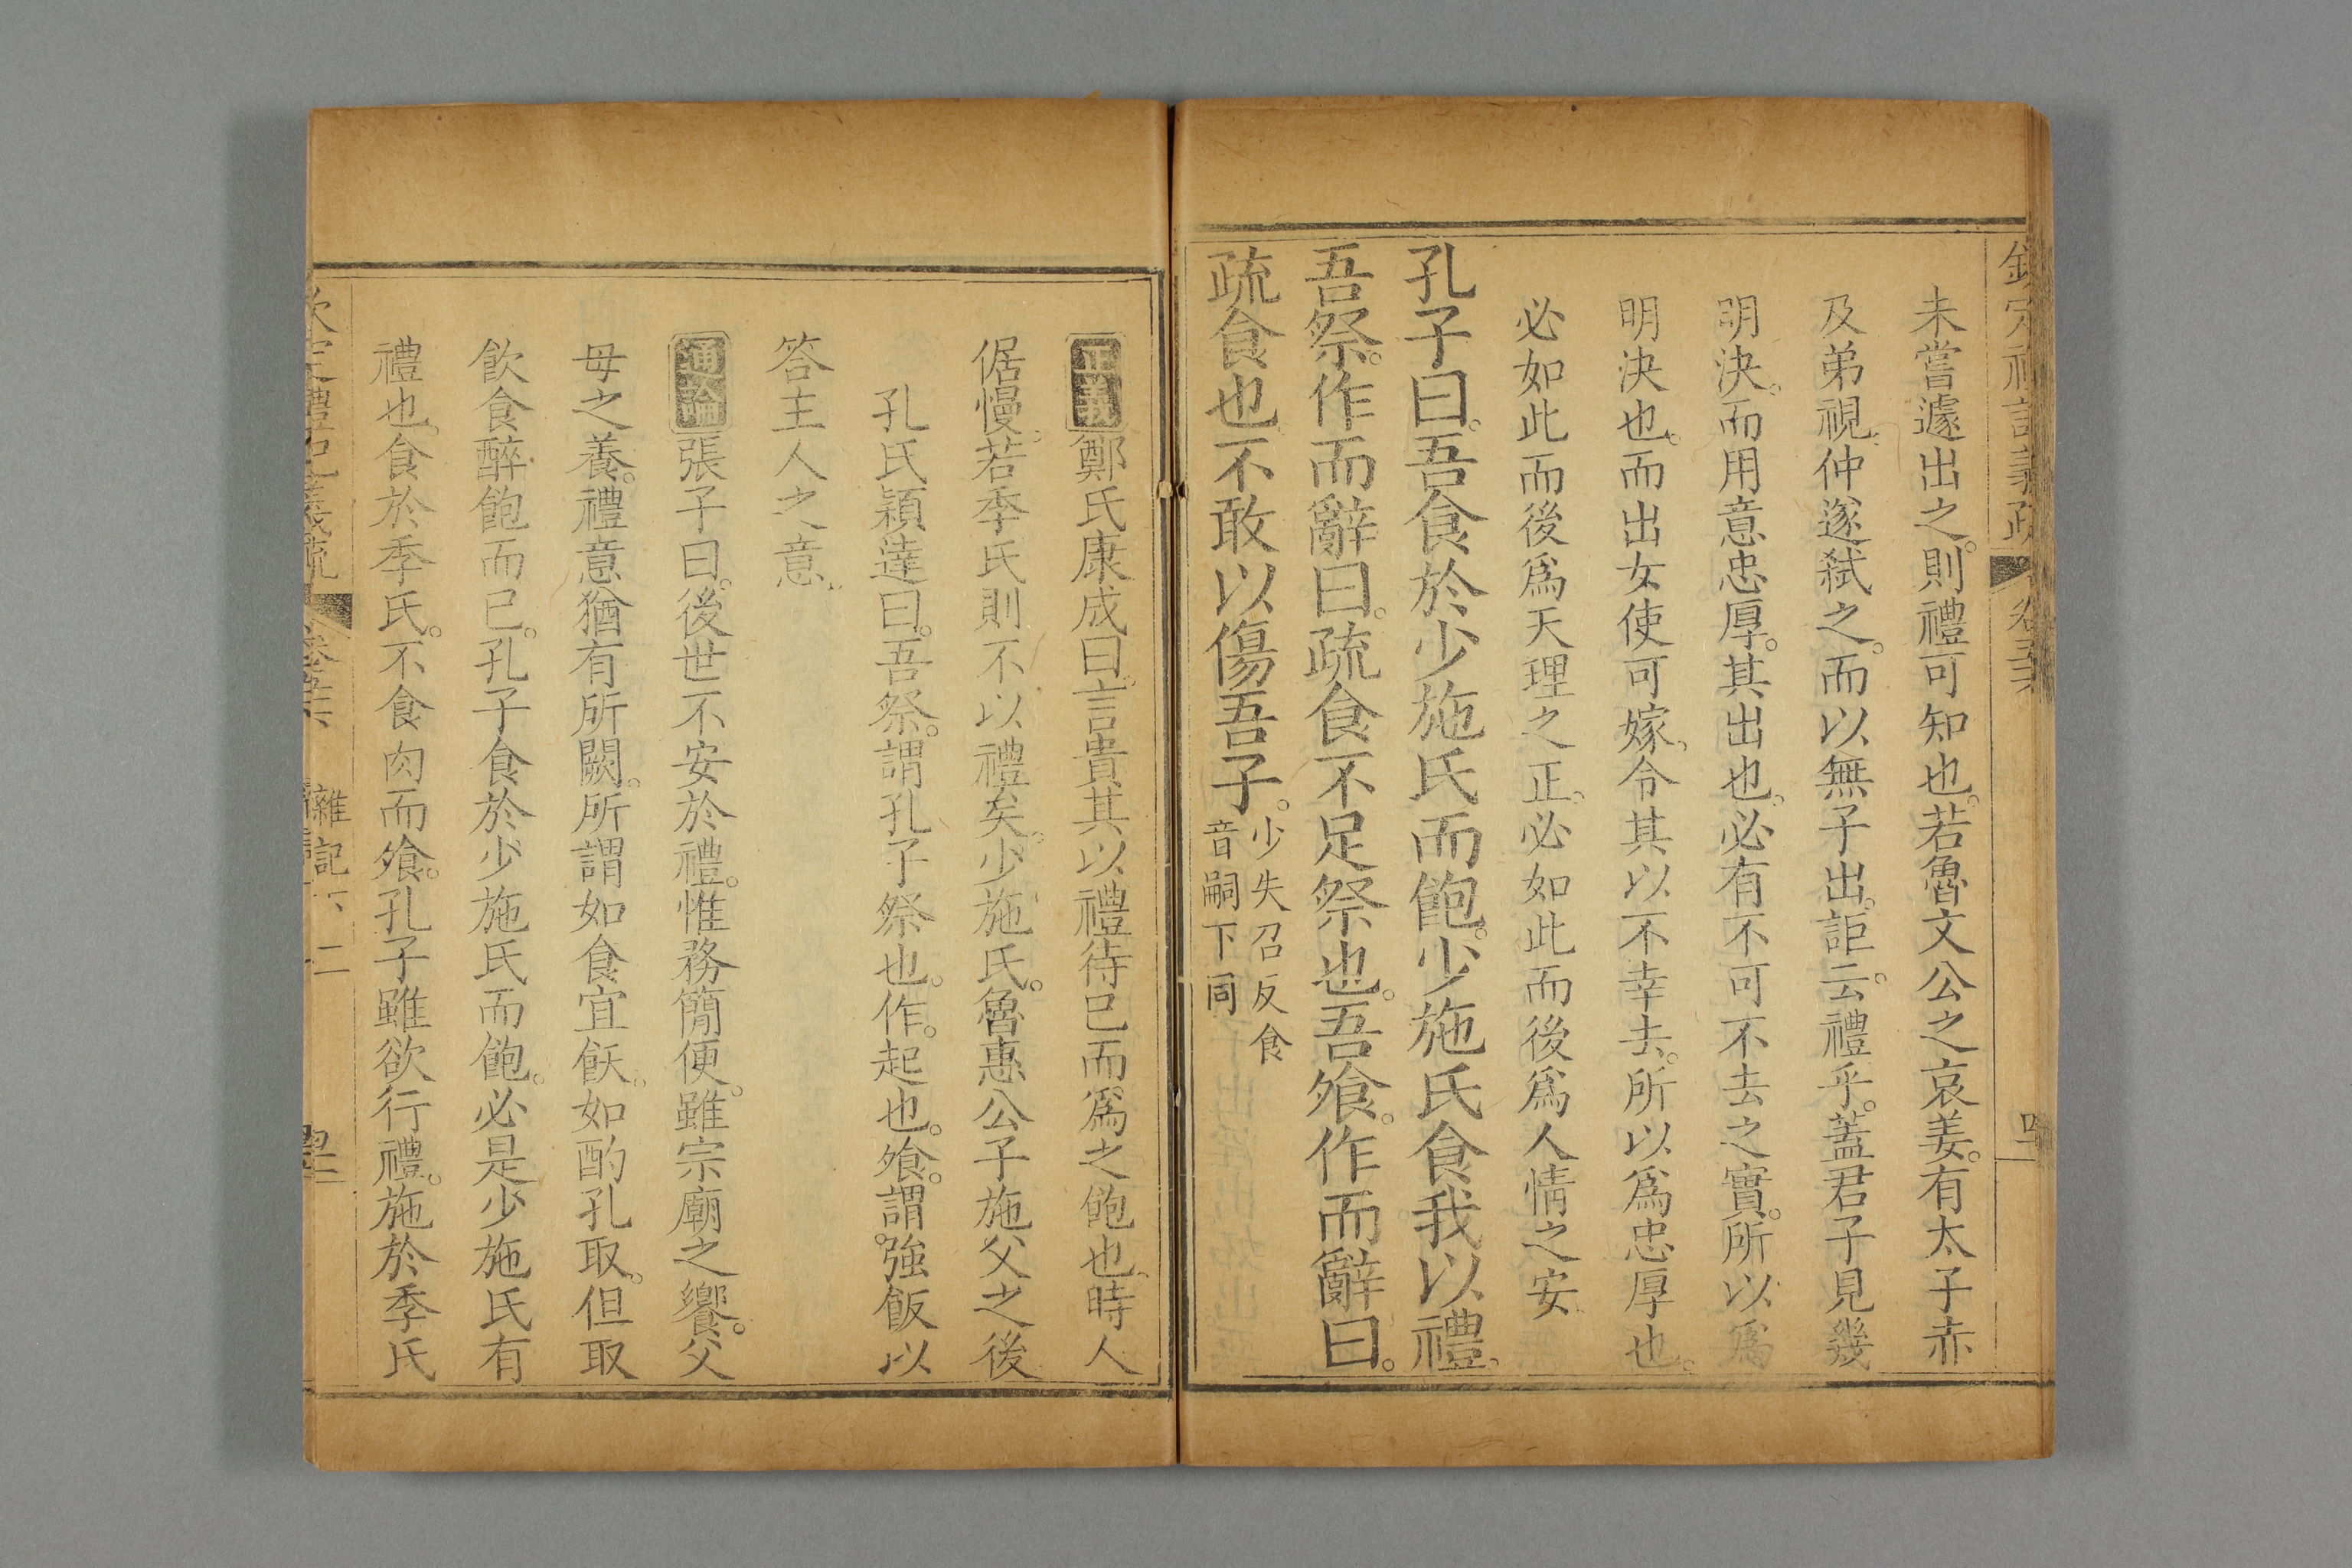 未嘗遽出之。則禮可知也。若魯文公之哀姜。有太子赤
及弟視。仲遂弒之。而以無子出。詎云禮乎。蓋君子見幾
明決。而用意忠厚。其出也。必有不可不去之實。所以爲
明決也。而出女使可嫁。令其以不幸去。所以爲忠厚也。
必如此而後爲天理之正。必如此而後爲人情之安
孔子曰。吾食於少施氏而飽。少施氏食我以禮。
吾祭。作而辭曰。疏食不足祭也。吾飱。作而辭曰。
疏食也不敢以傷吾子。
少失召反食
音嗣下同
正義鄭氏康成曰。言貴其以禮待己而爲之飽也。時人
倨慢。若季氏則不以禮矣。少施氏。魯惠公子施父之後
孔氏穎達曰。吾祭。謂孔子祭也。作。起也。飱。謂強飯以
答主人之意。
通論張子曰。後世不安於禮。惟務簡便。雖宗廟之饗。父
母之養。禮意猶有所闕。所謂如食宜飫。如酌孔取。但取
飲食醉飽而已。孔子食於少施氏而飽。必是少施氏有
禮也。食於季氏。不食肉而飱。孔子雖欲行禮。施於季氏
雜記下 二